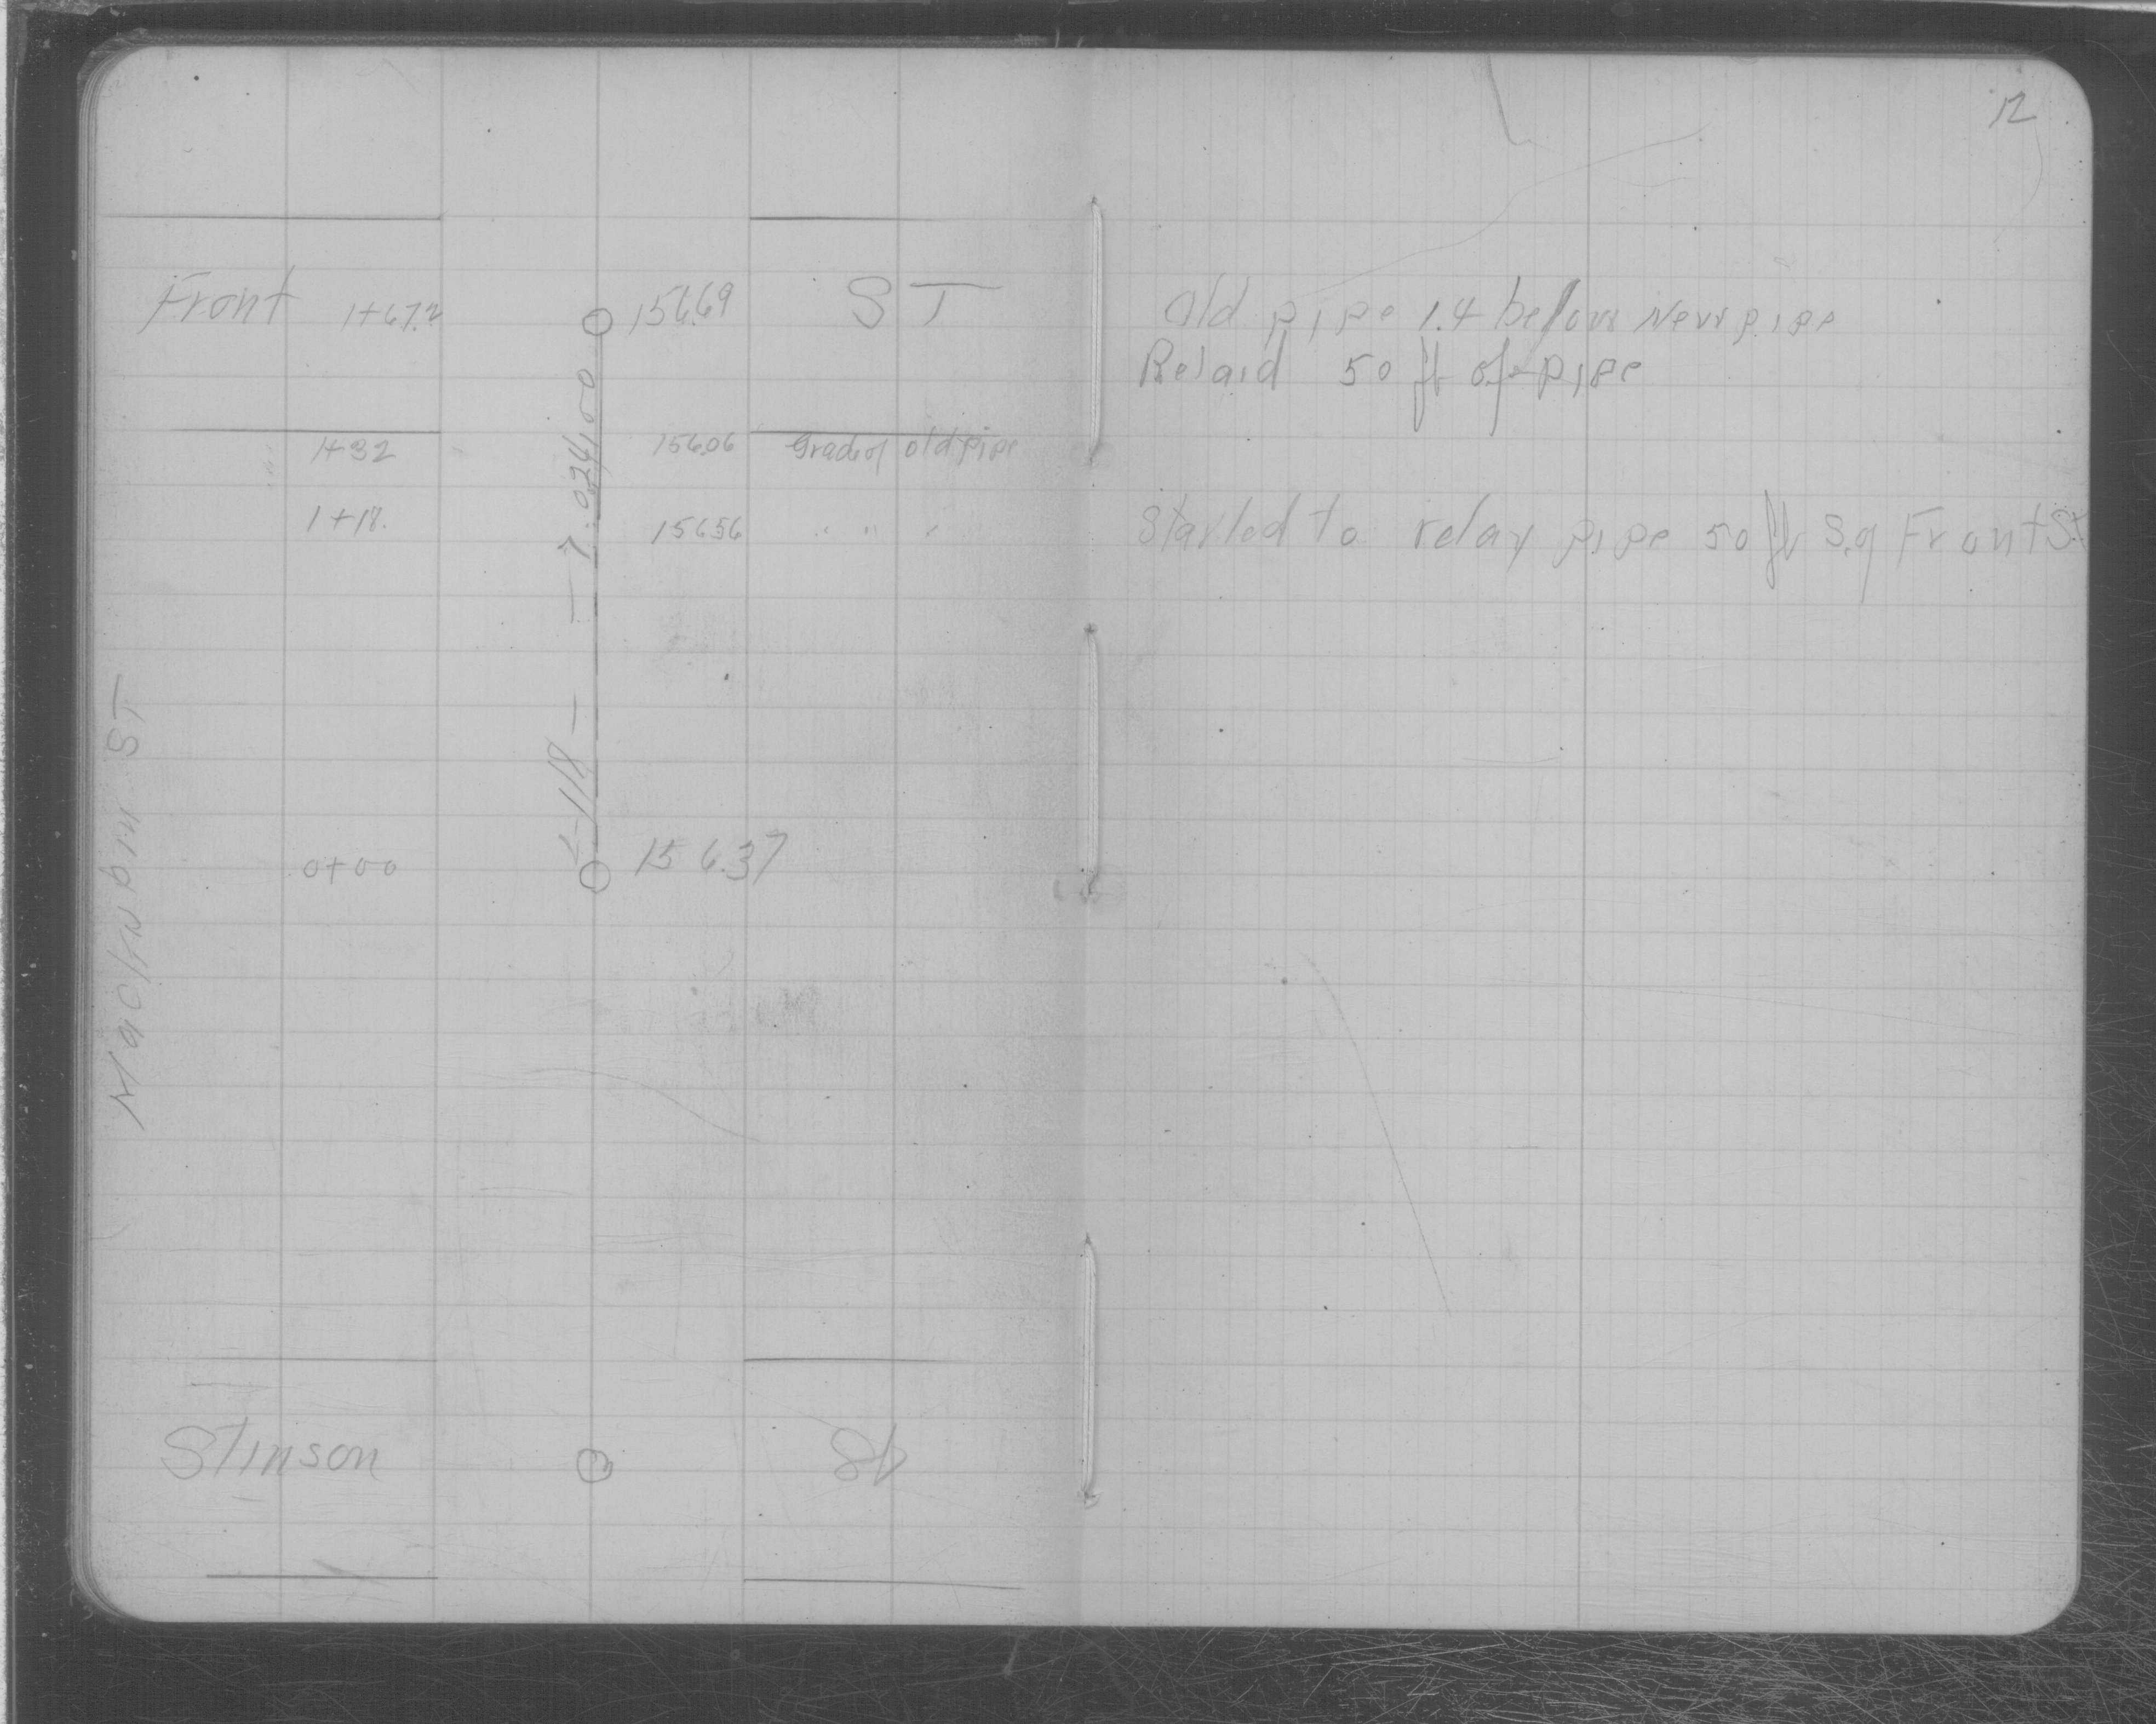 12
Front 1+67.2 156.69 ST
Old pipe 1.4 below New pipe
Relaid 50 ft of pipe
1+32 156.06 Grade of old pipe
1+18. 156.56 " " "
Started to relay pipe 50 ft S. of Front St
118
0+00 156.37
Stinson ST